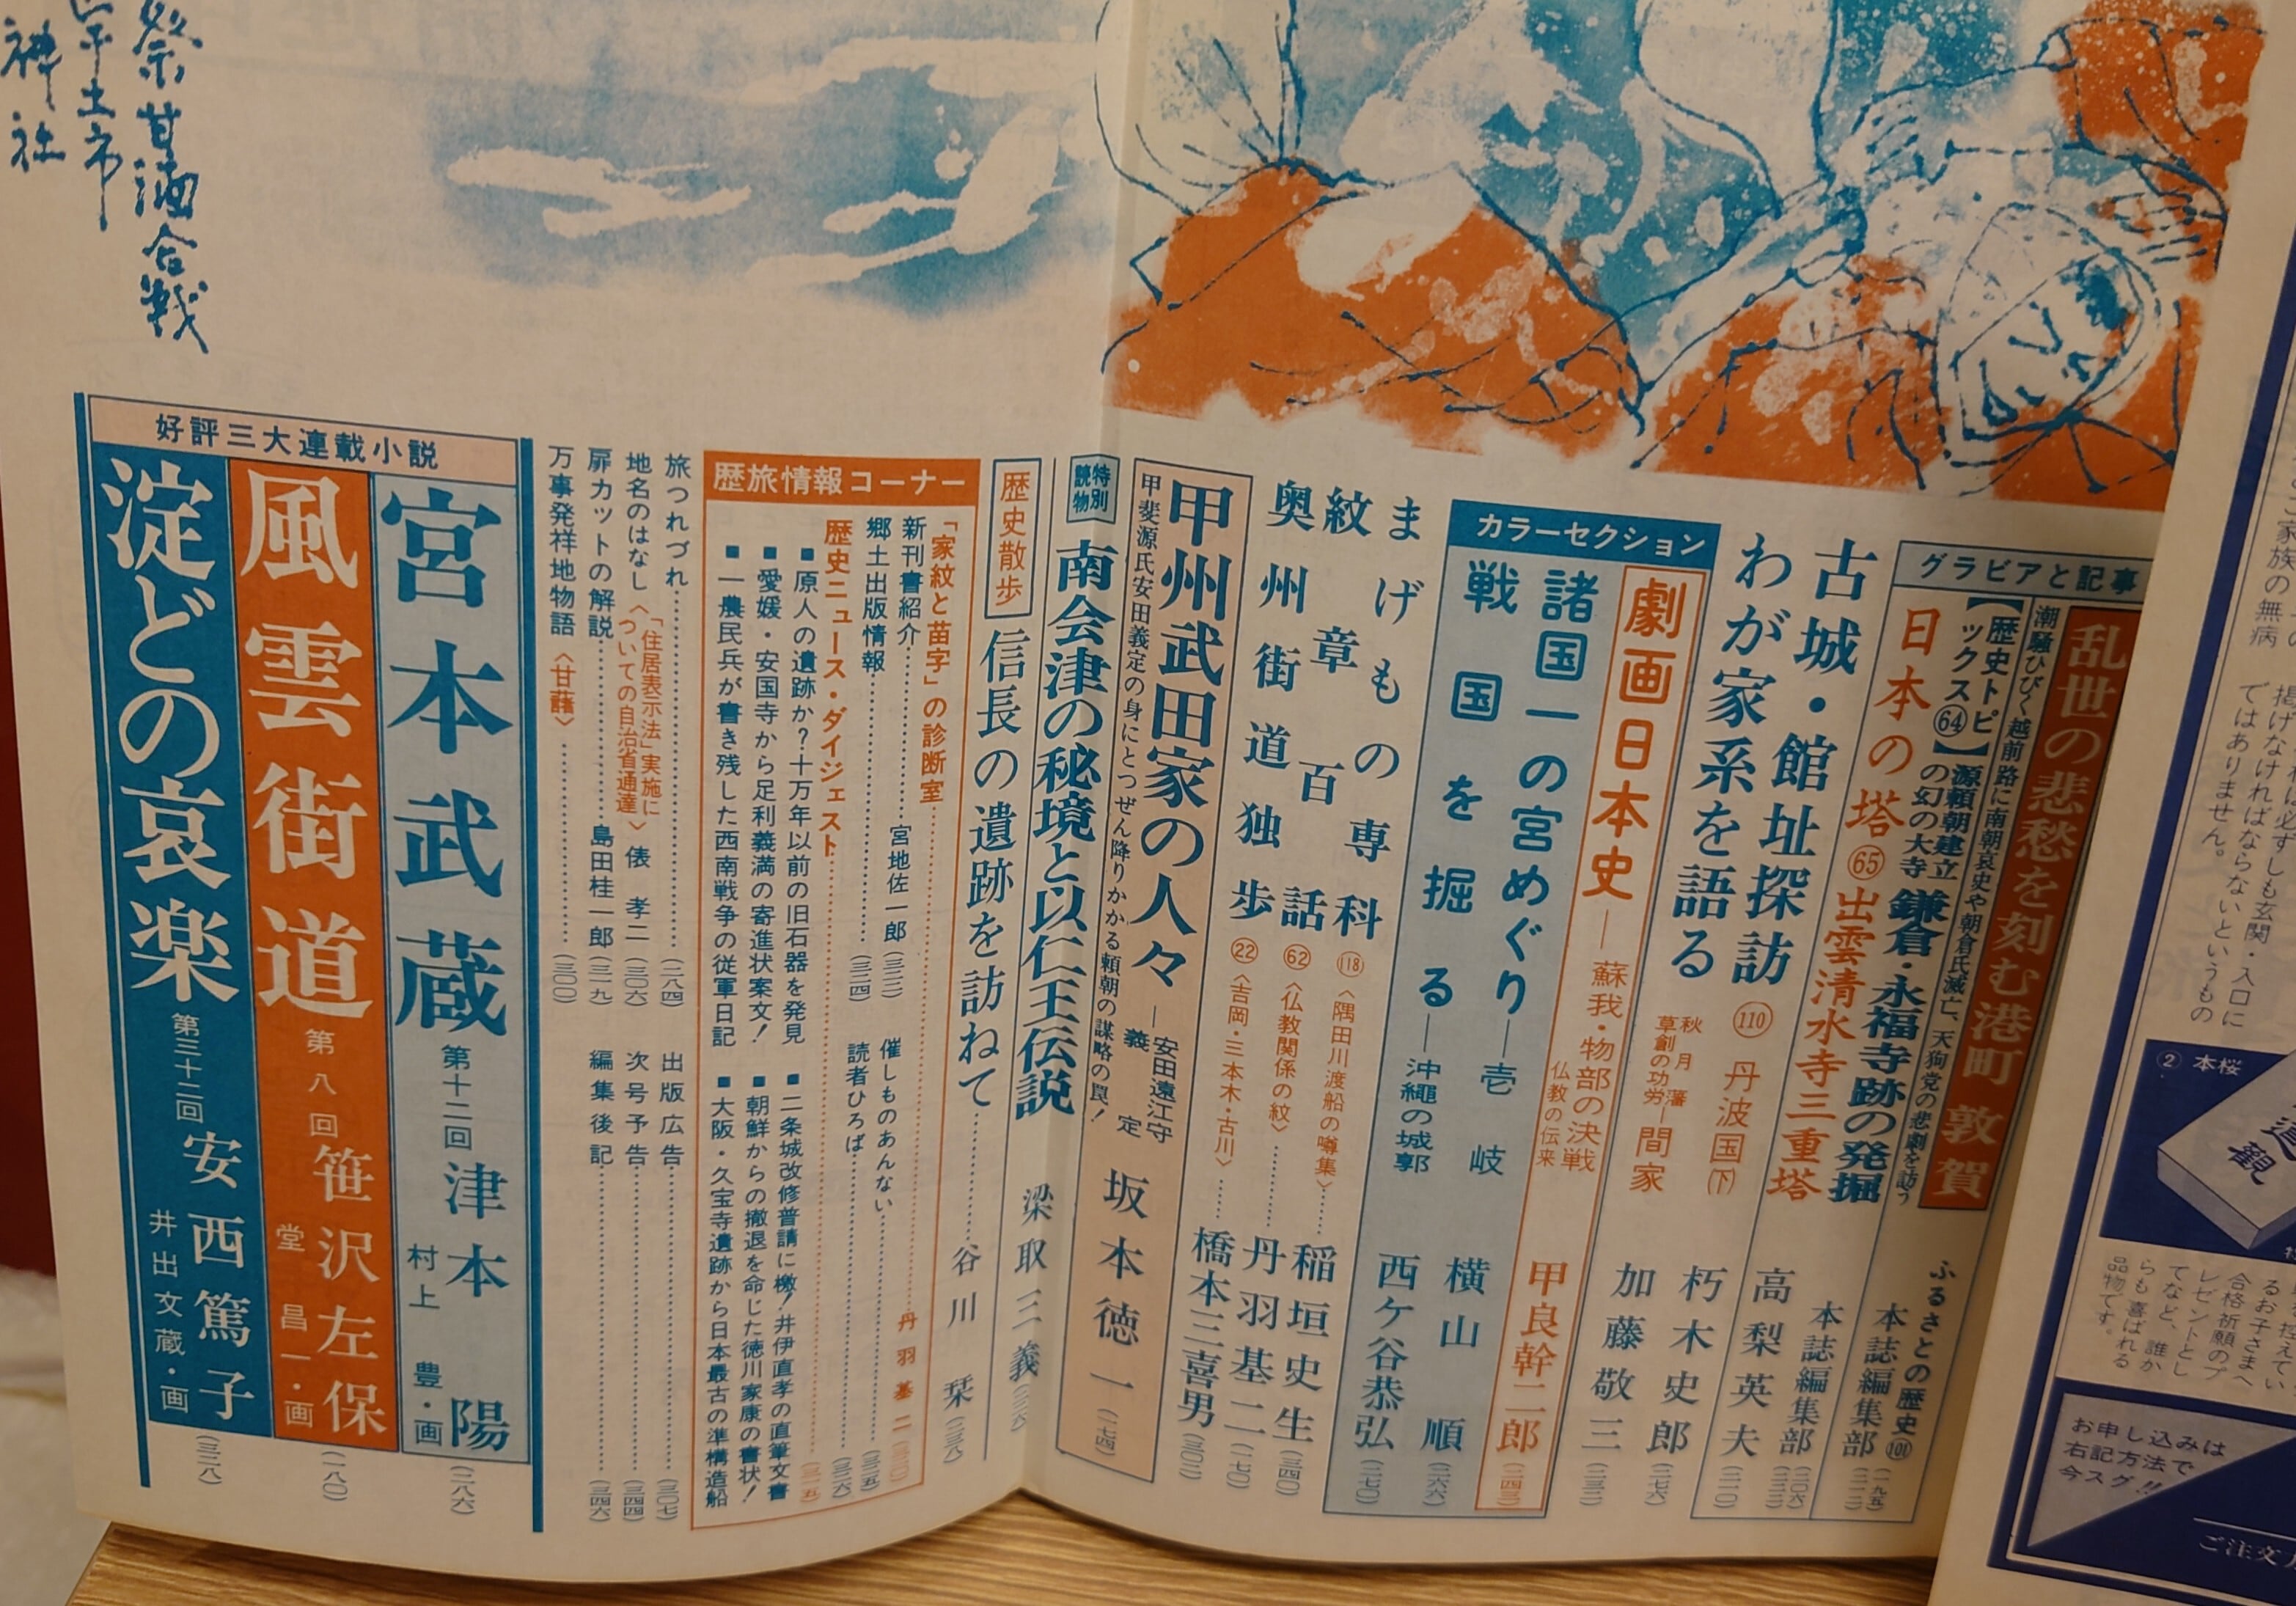 グラビアと記事
乱世の悲愁を刻む港町 敦賀
潮騒ひびく越前路に南朝哀史や朝倉氏滅亡、天狗党の悲劇を訪う
ふるさとの歴史(101)
【歴史トピックス(64)】源頼朝建立の幻の大寺 鎌倉・永福寺跡の発掘
本誌編集部
日本の塔(65) 出雲清水寺三重塔
本誌編集部
古城・館址探訪(110) 丹波国(下)
高梨英夫
わが家系を語る
秋月藩草創の功労―間家
朽木史郎
加藤敬三
劇画日本史―蘇我・物部の決戦 仏教の伝来
甲良幹二郎
カラーセクション
諸国一の宮めぐり―壱岐
横山順
戦国を掘る―沖縄の城郭
西ケ谷恭弘
まげもの専科(118)〈隅田川渡船の噂集〉
稲垣史生(三四〇)
紋章百話(62)〈仏教関係の紋〉
丹羽基二(一七〇)
奥州街道独歩(22)〈吉岡・三本木・古川〉
橋本三喜男(三〇二)
甲州武田家の人々―安田遠江守義定
甲斐源氏安田義定の身にとつぜん降りかかる頼朝の謀略の罠!
坂本徳一(一七四)
特別読物
南会津の秘境と以仁王伝説
梁取三義
歴史散歩
信長の遺跡を訪ねて
谷川栞
歴旅情報コーナー
「家紋と苗字」の診断室
丹羽基二
新刊書紹介 宮地佐一郎
催しものあんない
郷土出版情報
読者ひろば
歴史ニュース・ダイジェスト
■原人の遺跡か?十万年以前の旧石器を発見
■二条城改修普請に檄!井伊直孝の直筆文書
■愛媛・安国寺から足利義満の寄進状案文!
■朝鮮からの撤退を命じた徳川家康の書状!
■一農民兵が書き残した西南戦争の従軍日記
■大阪・久宝寺遺跡から日本最古の準構造船
旅つれづれ(二八四)
出版広告(三〇七)
地名のはなし〈「住居表示法」実施についての自治省通達〉俵孝二(三〇六)
次号予告(三四四)
扉カットの解説 島田桂一郎(三一九)
編集後記(三四六)
万事発祥地物語〈甘藷〉(三〇〇)
好評三大連載小説
宮本武蔵 第十二回 津本陽
村上豊・画
(二八六)
風雲街道 第八回 笹沢左保
堂昌一・画
(一八〇)
淀どの哀楽 第三十二回 安西篤子
井出文蔵・画
(三二八)
祭 甘酒合戦
宇土市
神社
掲げなければならないというもの
ではありません。
②本桜
合格祈願のプ
レゼントとし
てなど、誰か
らも喜ばれる
品物です。
お申し込みは
右記方法で
今スグ!!